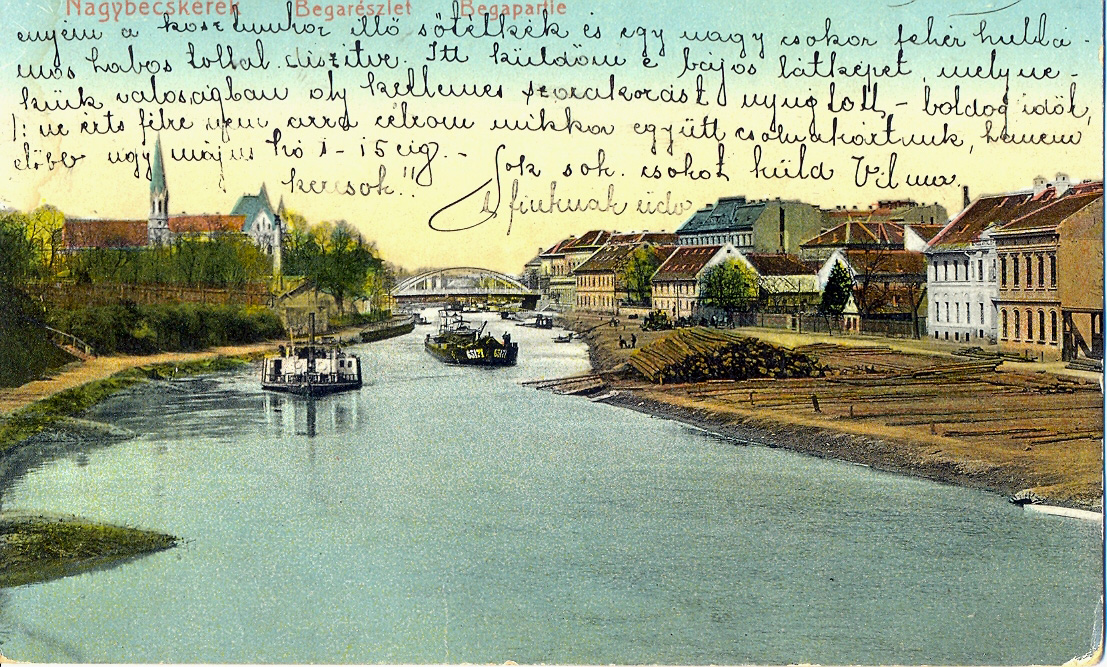 Nagybecskerek Begarészlet Begapartie
enyém a kosztümhöz illő sötétkék és egy nagy csokor fehér hullá-
mos habos tollal diszitve. Itt küldöm e bájos látképet, melyne-
künk valoságban oly kellemes szorakozást nyujtott, - boldog idők,
/: ne érts félre nem arra célzom mikkor együtt csolnakáztunk, hanem
előbb ugy május hó 1-15 eig. -
Sok sok. csokot küld Vilma.
A fiuknak üdv